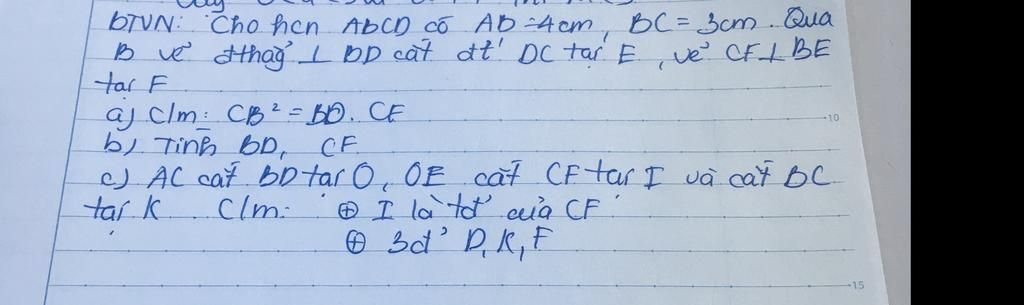 BTVN: Cho hcn ABCD có AD = 4cm, BC = 3cm. Qua
B vẽ đthẳg ⊥ BD cắt đt' DC tại E, vẽ CF ⊥ BE
tại F
a) C/m: CB² = BD. CF
b) Tính BD, CF
c) AC cắt BD tại O, OE cắt CF tại I và cắt BC
tại K C/m: ⊕ I là tđ' của CF
⊕ 3đ' D, K, F
10
15